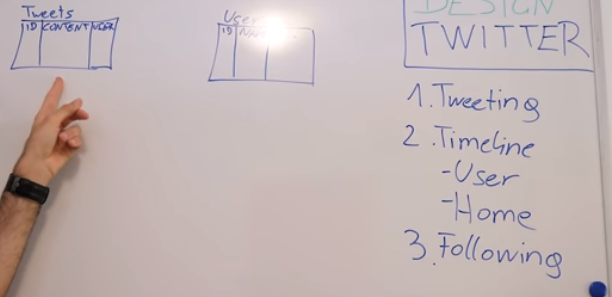 Tweets
ID CONTENT USER
User
ID
DESIGN
TWITTER
1. Tweeting
2. Timeline
-User
-Home
3. Following